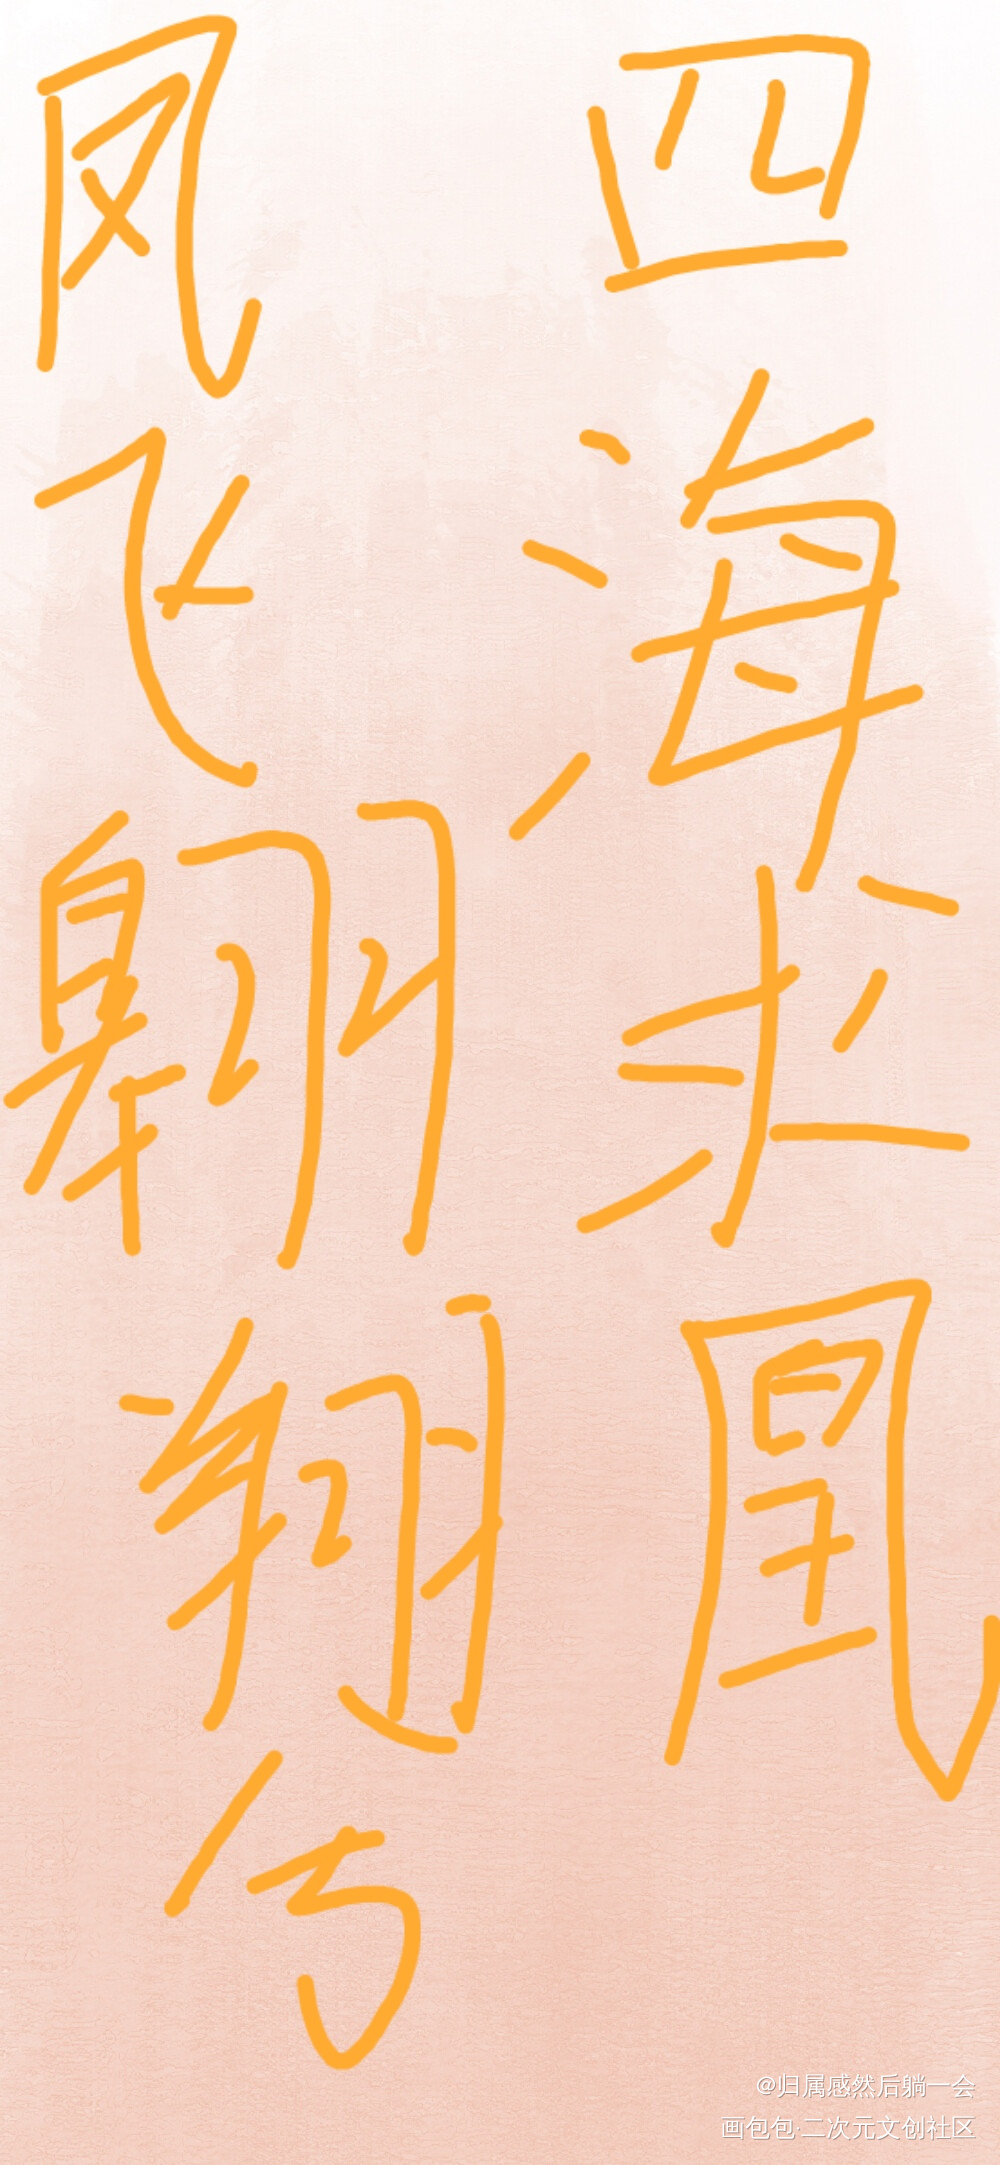 凤飞翱翔兮
四海求凰
@归属感然后躺一会
画包包·二次元文创社区